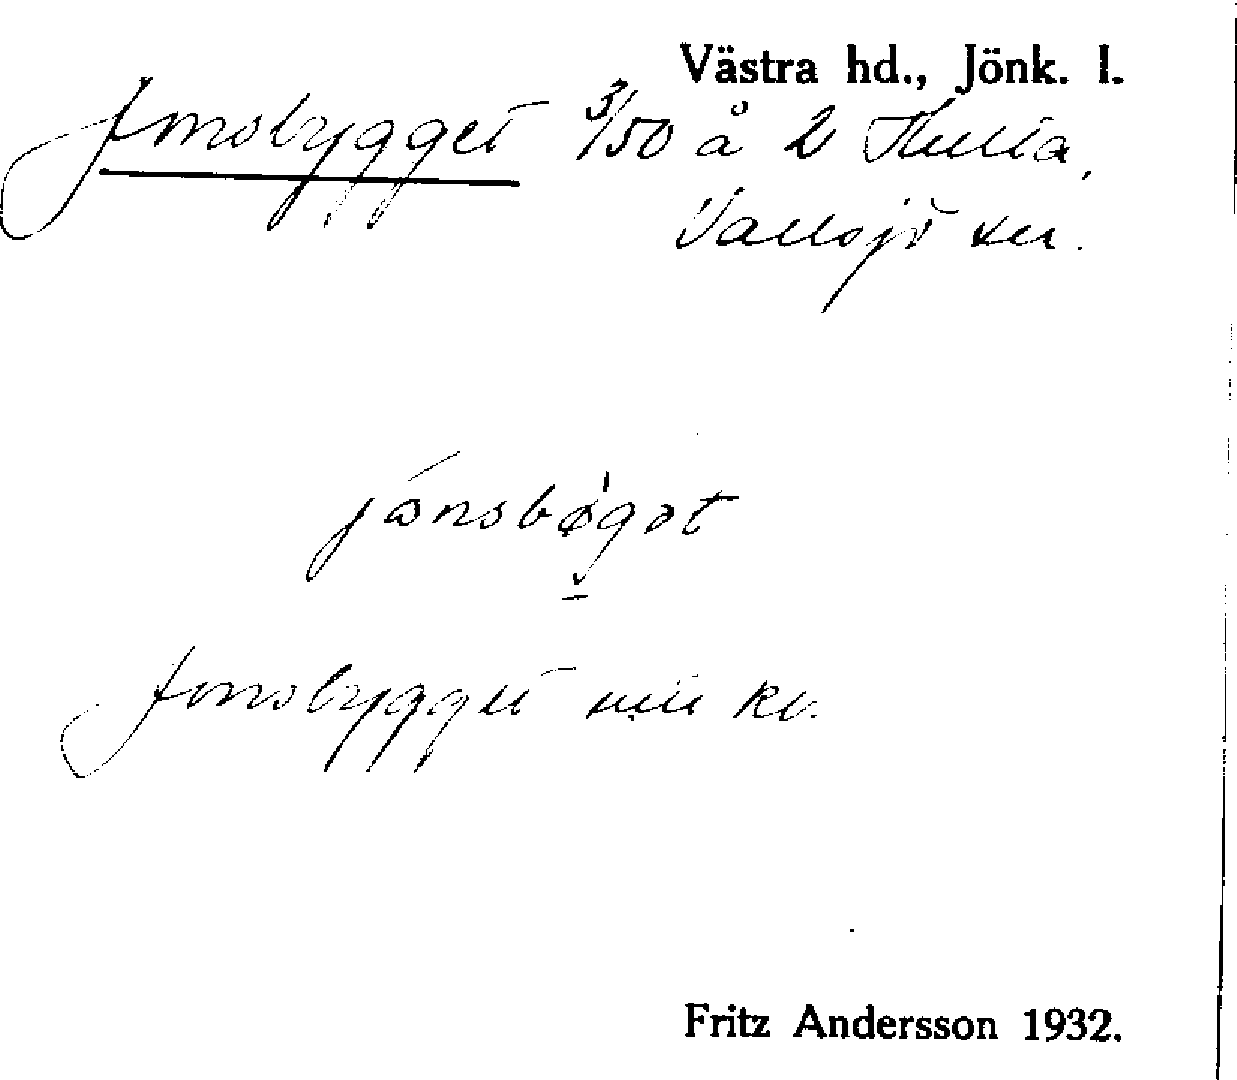 Västra hd., Jönk. l.
Jonsbygget 3/50 å 2 Hulta,
Vallsjö sn.
jónsbø̀gət
Jonsbygget rv.
Fritz Andersson 1932.